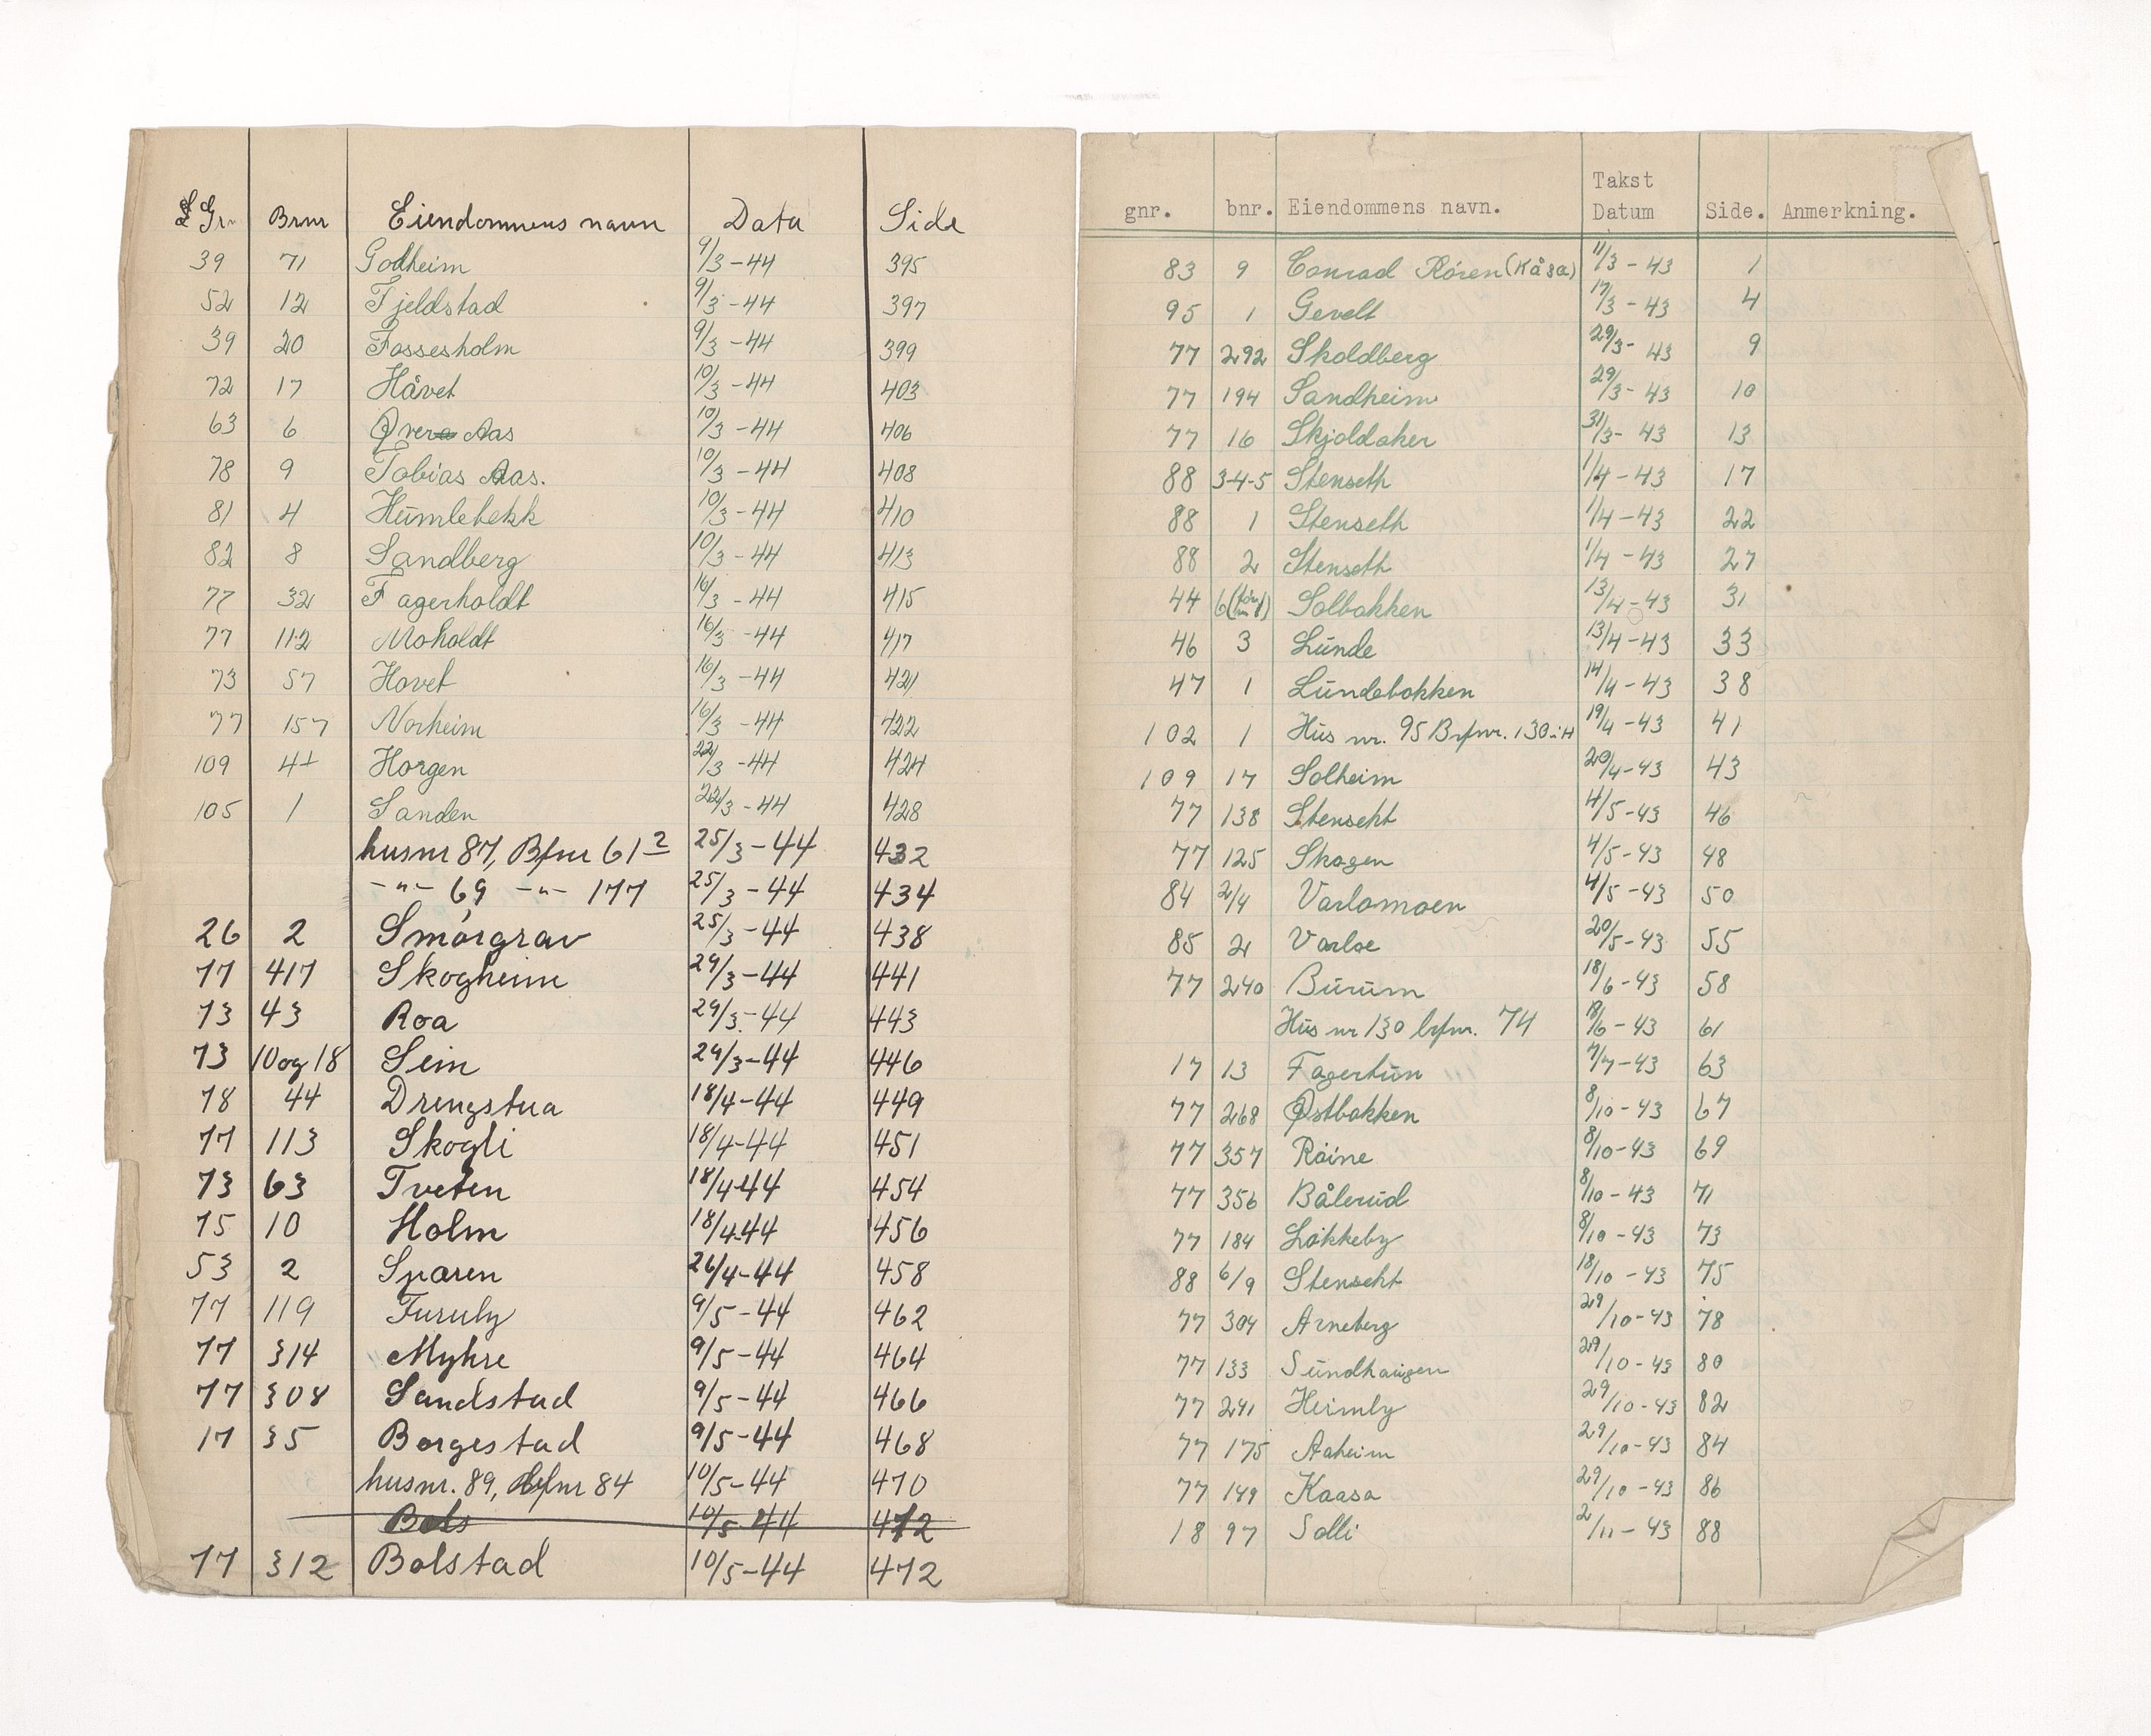 Gr. Brnr Eiendommens navn Data Side
39 71 Godheim 9/3-44 395
52 12 Fjeldstad 9/3-44 397
39 20 Fossesholm 9/3-44 399
72 17 Håvet 10/3-44 403
63 6 Øvre Aas 10/3-44 406
78 9 Tobias Aas. 10/3-44 408
81 4 Humlebekk 10/3-44 410
82 8 Sandberg 10/3-44 413
77 32 Fagerholdt 16/3-44 415
77 112 Moholdt 16/3-44 417
73 57 Hovet 16/3-44 421
77 157 Norheim 16/3-44 422
109 Horgen 22/3-44 424
105 1 Sanden 22/3-44 428
husnr 87, Bfnr 61 2 25/3-44 432
-"- 69 -"- 177 25/3-44 434
26 2 Smørgrav 25/3-44 438
77 417 Skogheim 29/3-44 441
73 43 Roa 29/3-44 443
73 10 og 18 Sem 29/3-44 446
78 44 Drengstua 18/4-44 449
77 113 Skogli 18/4-44 451
73 63 Tveten 18/4-44 454
75 10 Holm 18/4-44 456
53 2 Sparen 26/4-44 458
77 119 Furuly 9/5-44 462
77 314 Myhre 9/5-44 464
77 308 Sandstad 9/5-44 466
17 35 Borgestad 9/5-44 468
husnr. 89, Bfnr 84 10/5-44 470
Bols 10/5-44 472
77 312 Bolstad 10/5-44 472
gnr. bnr. Eiendommens navn. Takst Datum Side. Anmerkning.
83 9 Conrad Røren (Kåsa) 11/3-43 1
95 1 Gevelt 17/3-43 4
77 292 Skoldberg 29/3-43 9
77 194 Sandheim 29/3-43 10
77 16 Skjoldaker 31/3-43 13
88 3-4-5 Stenseth 1/4-43 17
88 1 Stenseth 1/4-43 22
88 2 Stenseth 1/4-43 27
44 6 Solbakken 13/4-43 31
46 3 Lunde 13/4-43 33
47 1 Lundebakken 14/4-43 38
102 1 Hus nr. 95 Brfnr. 130 19/4-43 41
109 17 Solheim 20/4-43 43
77 138 Stenseht 4/5-43 46
77 125 Skogen 4/5-43 48
84 2/4 Varlomoen 4/5-43 50
85 2 Varloe 20/5-43 55
77 240 Burum 18/6-43 58
Hus nr 130 brfnr. 74 18/6-43 61
17 13 Fagertun 7/7-43 63
77 268 Østbakken 8/10-43 67
77 357 Røine 8/10-43 69
77 356 Bålerud 8/10-43 71
77 184 Løkkeby 8/10-43 73
88 6/9 Stenseht 18/10-43 75
77 304 Arneberg 29/10-43 78
77 133 Sundhaugen 29/10-43 80
77 241 Heimly 29/10-43 82
77 175 Aaheim 29/10-43 84
77 149 Kaasa 29/10-43 86
18 97 Solli 2/11-43 88